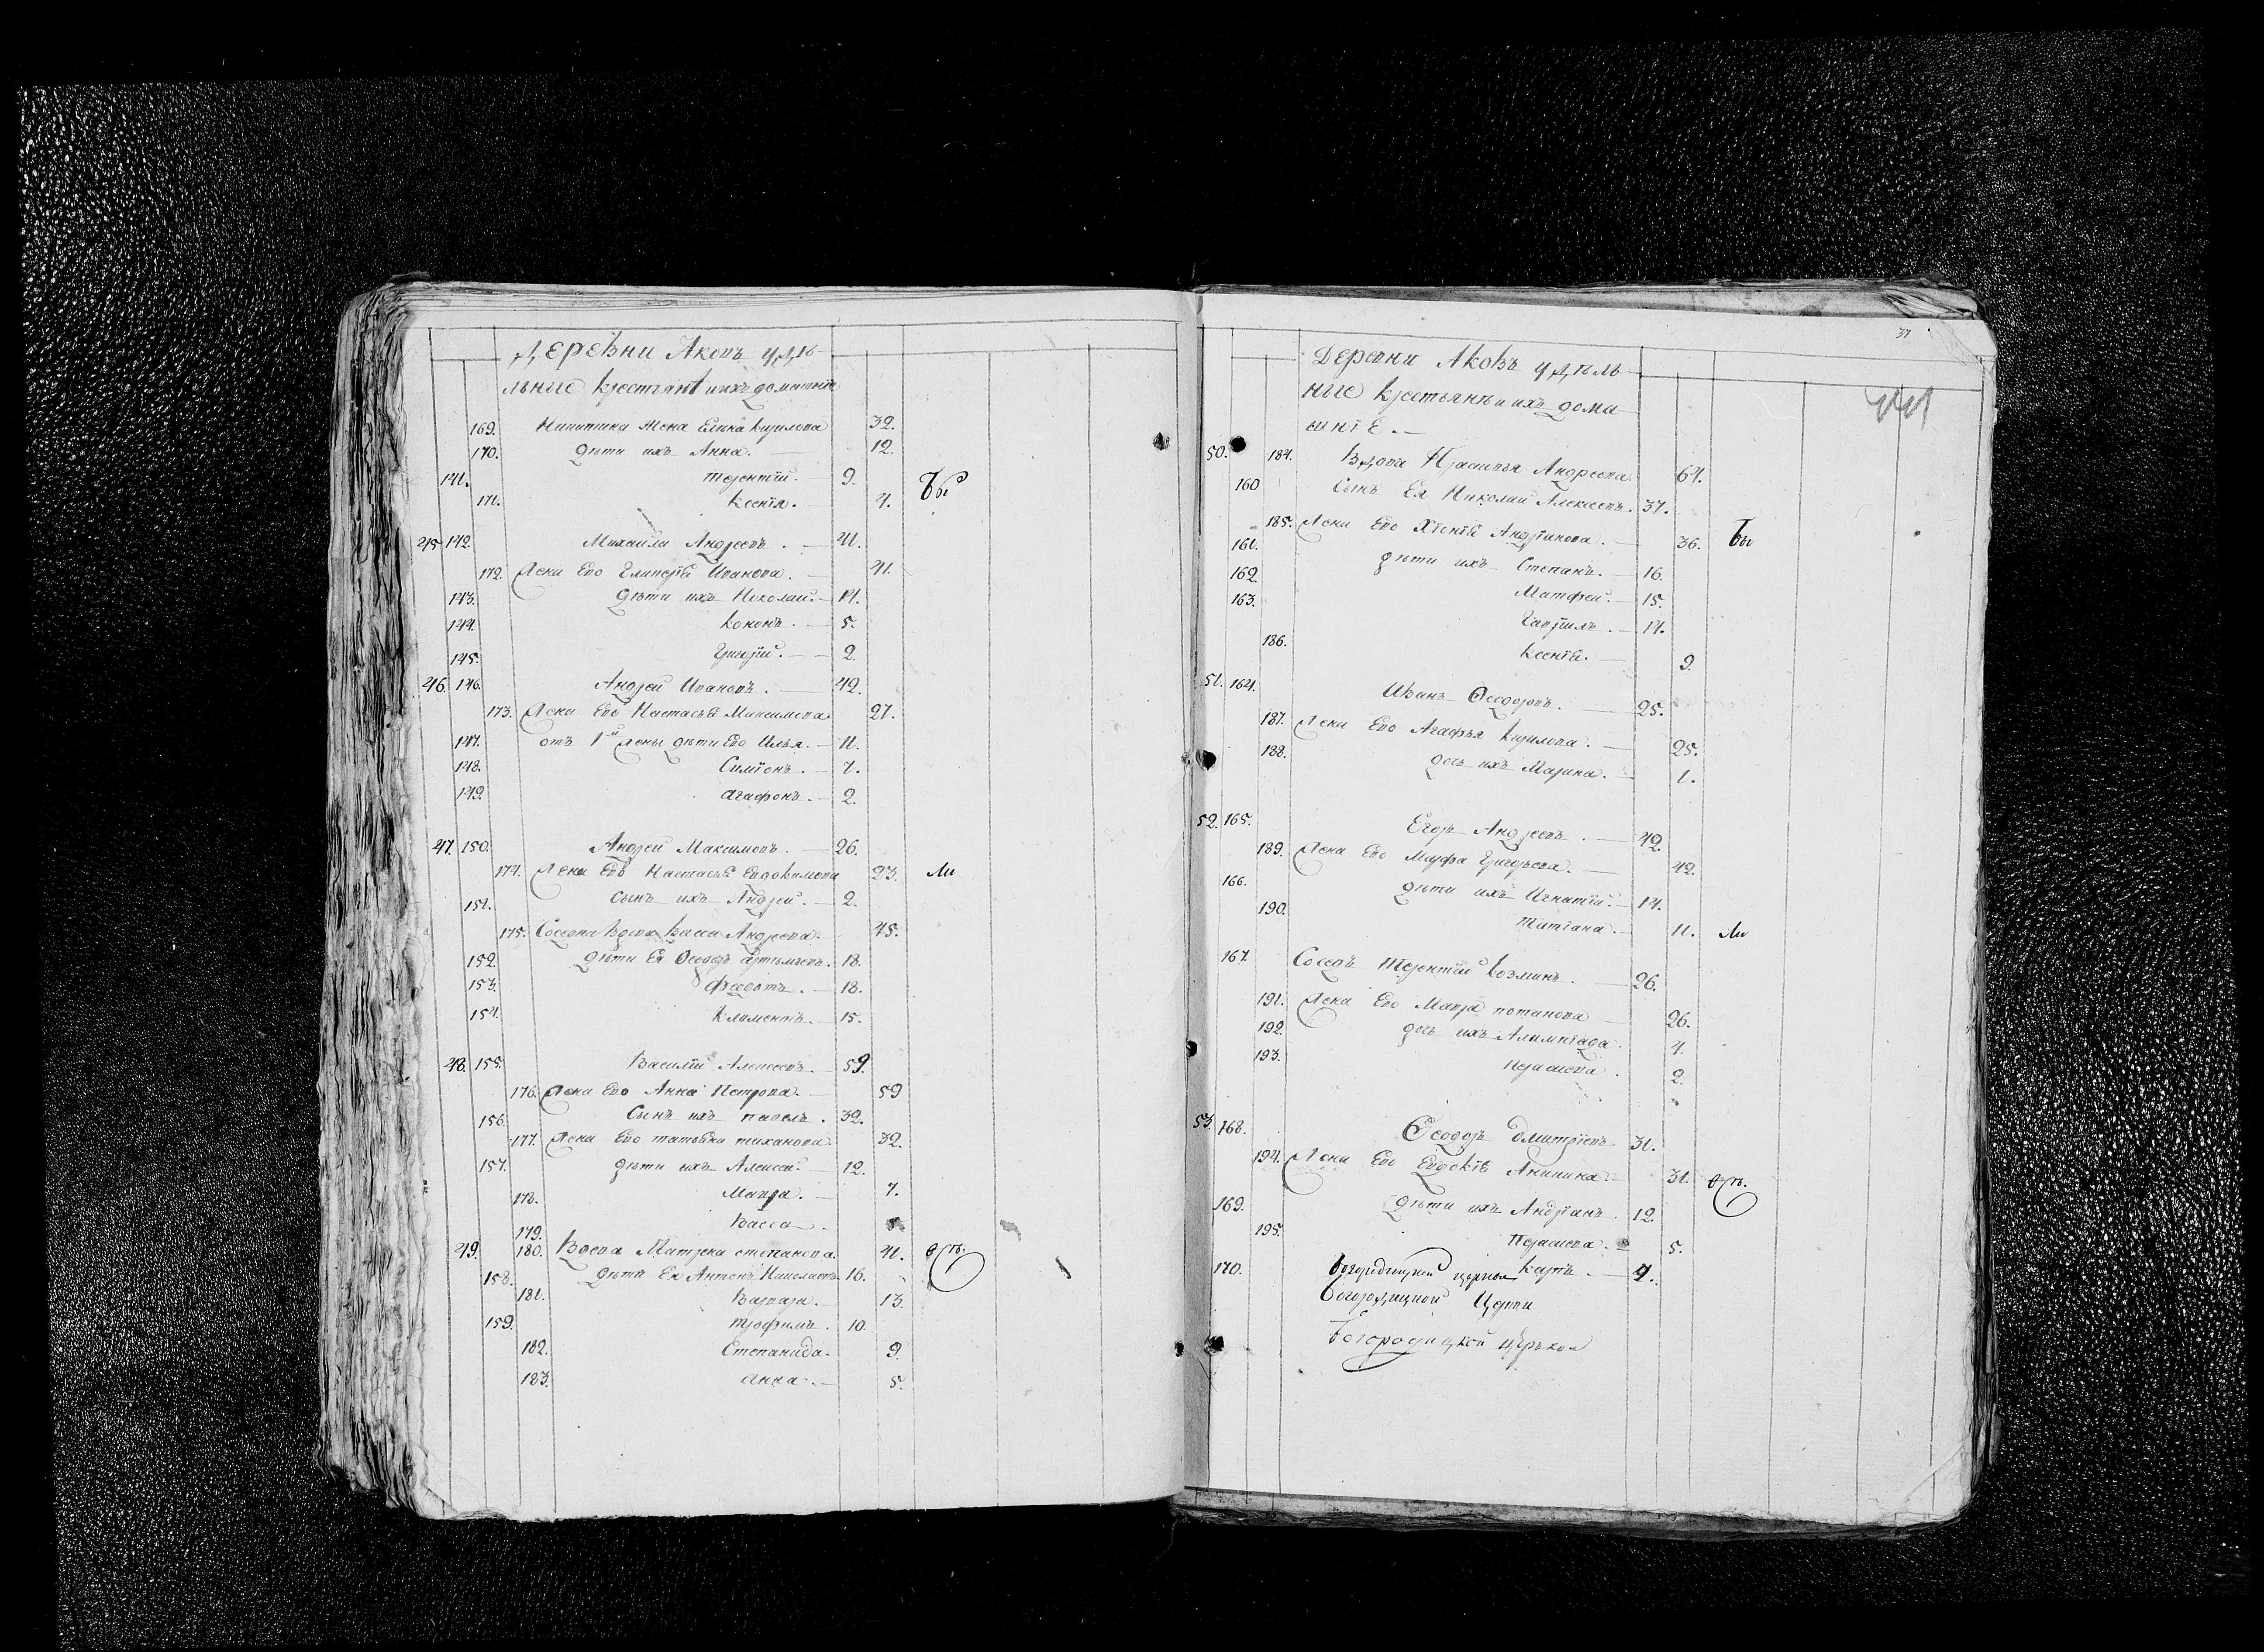 деревни Аковъ удѣ
льные крестьянѣ и ихъ домашнѣе
169. Никитина Жена Елена Кирилова 32.
170. Дѣти ихъ Анна. 12.
141. Терентїй. 9. бы
171. Ксенїя. 4.
45 142. Михаила Андреевъ. 41.
172. Жена Ево Гликерїя Иванова. 41.
143. Дѣти ихъ Николай. 14.
144. Кононъ. 5.
145. Григорїй. 2.
46. 146. Андрей Ивановъ. 42.
173. Жена Ево Настасья Максимова 27.
147. отъ 1й Жены дѣти Ево Илья. 11.
148. Симїонъ. 7.
149. Агафонъ. 2.
47. 150. Андрей Максимовъ. 26.
174. Жена Ево Настасья Евдокимова 23. ли
151. Сынъ ихъ Андрей. 2.
175. Соседка Вдова Васса Андреева. 45.
152. Дѣти Ея Ѳеодоръ Артемьевъ. 18.
153. Федотъ. 18.
154. Климентъ. 15.
48. 155. Василїй Алексеевъ. 59.
176. Жена Ево Анна Петрова. 59
156. Сынъ ихъ павелъ. 32.
177. Жена Ево татьяна тиханова 32.
157. Дѣти ихъ Алексей. 12.
178. Мавра. 7.
179. Васса.
49. 180. Вдова Матрена степанова. 41.
158. Дѣти Ея Антонъ Николаевъ 16.
181. Варвара. 13.
159. трофимъ. 10.
182. Степанида. 9.
183. Анна. 5.
37
Деревни Аковъ удѣль
ные крестьянѣ и ихъ дома
шнїе.
50. 184. Вдова Прасковья Андреева 64.
160 Сынъ Ея Николай Алексеевъ. 37.
185. Жена Ево Хїонїя Андрїанова. 36. бы
161. дѣти ихъ Степанъ. 16.
162. Матфей. 15.
163. Гаврїилъ. 14.
186. Ксенїя. 9.
51. 164. Иванъ Ѳеодоровъ. 25.
187. Жена Ево Агафья Кирилова. 25.
188. дочь ихъ Марина. 1.
52. 165. Егоръ Андреевъ. 42.
189. Жена Ево Марфа Григорьева. 42.
166. дѣти ихъ Игнатїй. 14.
190. Татїана. 11. ли
167. Соседъ Терентїй Козминъ. 26.
191. Жена Ево Мавра потапова 26.
192. дочь ихъ Алимпїада. 4.
193. Парасковa. 2.
53 168. Ѳеодоръ Дмитрїевъ 31.
194. Жена Ево Евдокїя Аникина. 31.
169. дѣти ихъ Андрїанъ. 12.
195. Парасковa. 5.
170. Карпъ. 4.
богородицкой церкви
богородицкой Церкви
богородицкой церькви